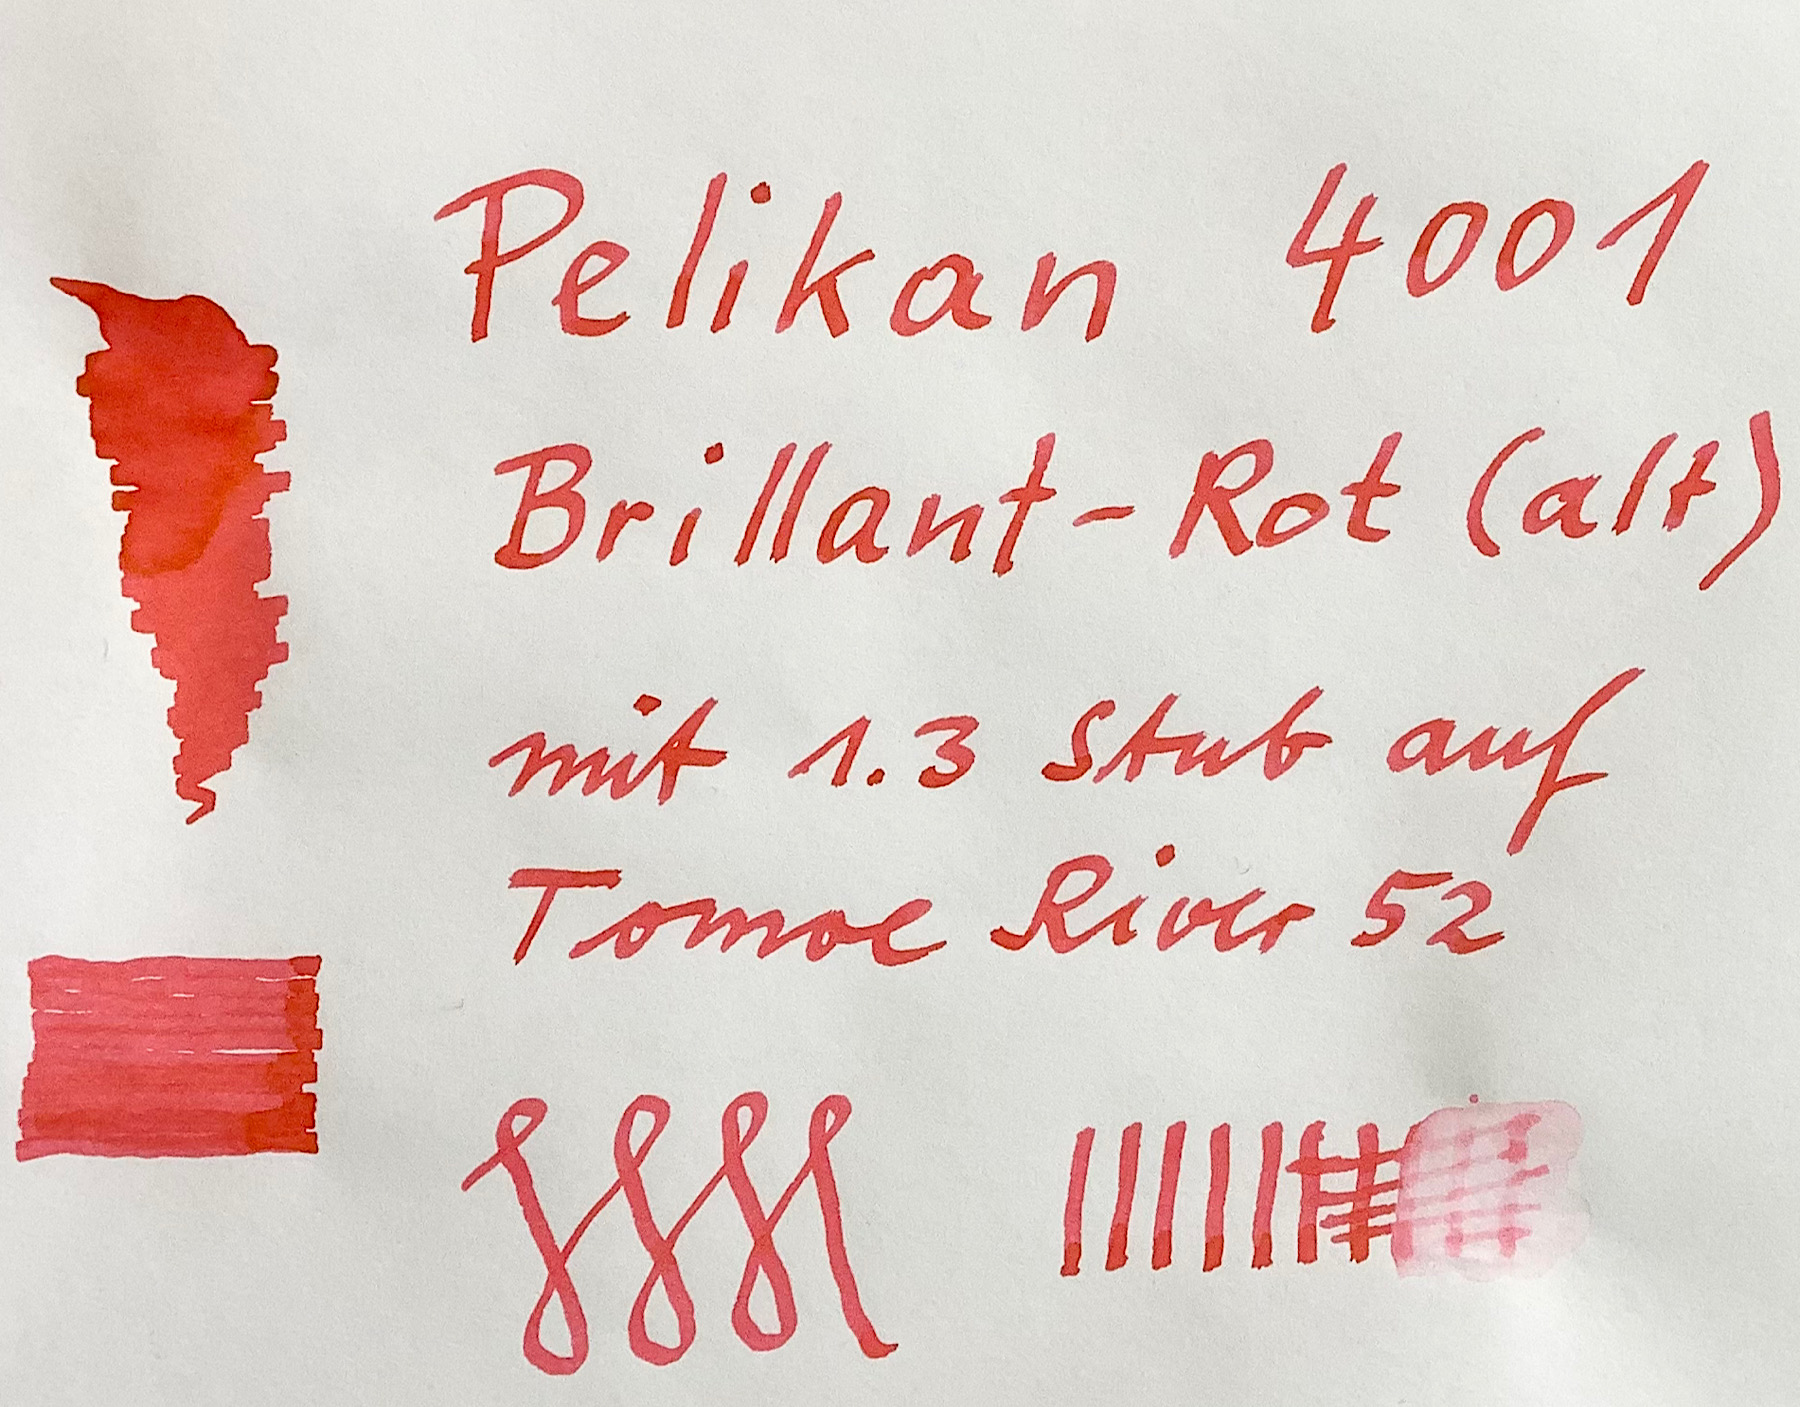 Pelikan 4001
Brillant-Rot (alt)
mit 1.3 Stub auf
Tomoe River 52